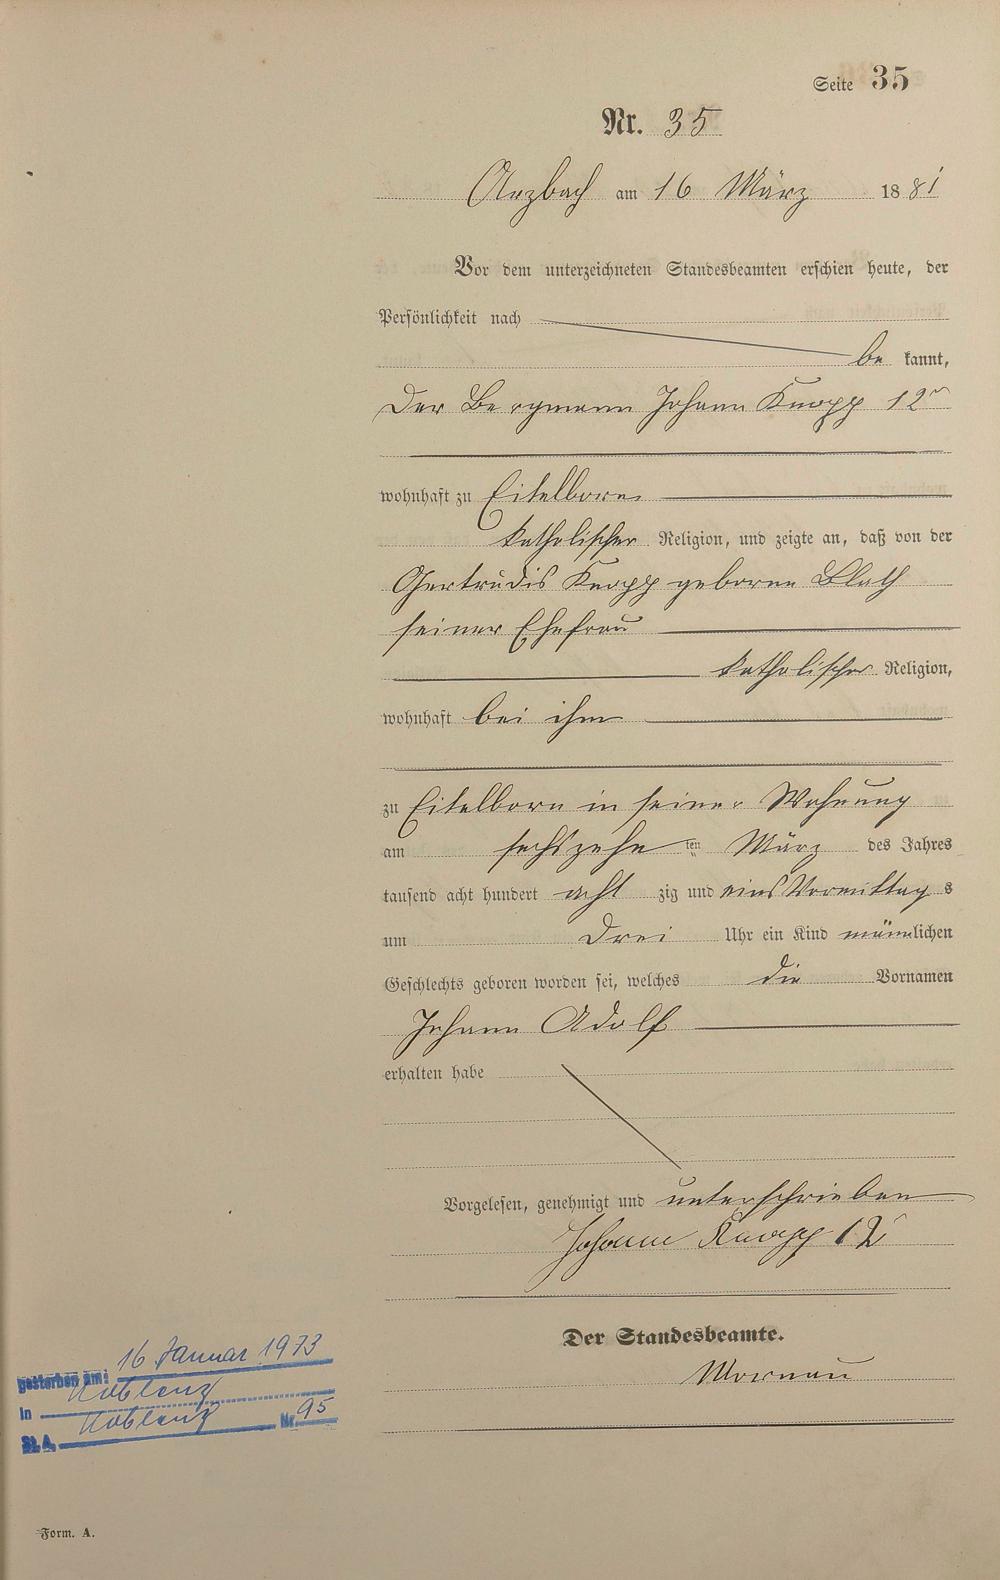 Seite 35
Nr. 35
Arzbach am 16 März 1881
Vor dem unterzeichneten Standesbeamten erschien heute, der
Persönlichkeit nach
be kannt,
der Bergmann Johann Knopp 12r
wohnhaft zu Eitelborn
katholischer Religion, und zeigte an, daß von der
Gertrudis Knopp geborne Blath
seiner Ehefrau
katholischer Religion,
wohnhaft bei ihm
zu Eitelborn in seiner Wohnung
am sechszehnten März des Jahres
tausend acht hundert acht zig und eins Vormittags
um drei Uhr ein Kind männlichen
Geschlechts geboren worden sei, welches die Vornamen
Johann Adolf
erhalten habe
Vorgelesen, genehmigt und unterschrieben
Johann Knopp 12
Der Standesbeamte.
gestorben am: 16 Januar 1973
in Koblenz
St.A. Koblenz Nr. 95
Form. A.